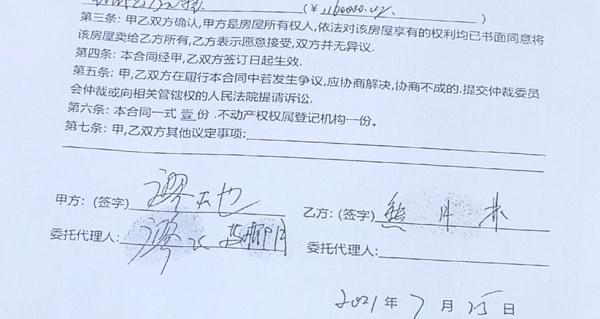 (¥
第三条: 甲乙双方确认,甲方是房屋所有权人,依法对该房屋享有的权利均已书面同意将
该房屋卖给乙方所有,乙方表示愿意接受,双方并无异议.
第四条: 本合同经甲,乙双方签订日起生效.
第五条: 甲,乙双方在履行本合同中若发生争议,应协商解决,协商不成的.提交仲裁委员
会仲裁或向相关管辖权的人民法院提请诉讼.
第六条: 本合同一式 壹 份 .不动产权权属登记机构一份。
第七条: 甲,乙双方其他议定事项:
甲方: (签字) 乙方: (签字) 熊
委托代理人: 委托代理人:
2021 年 7 月 25 日